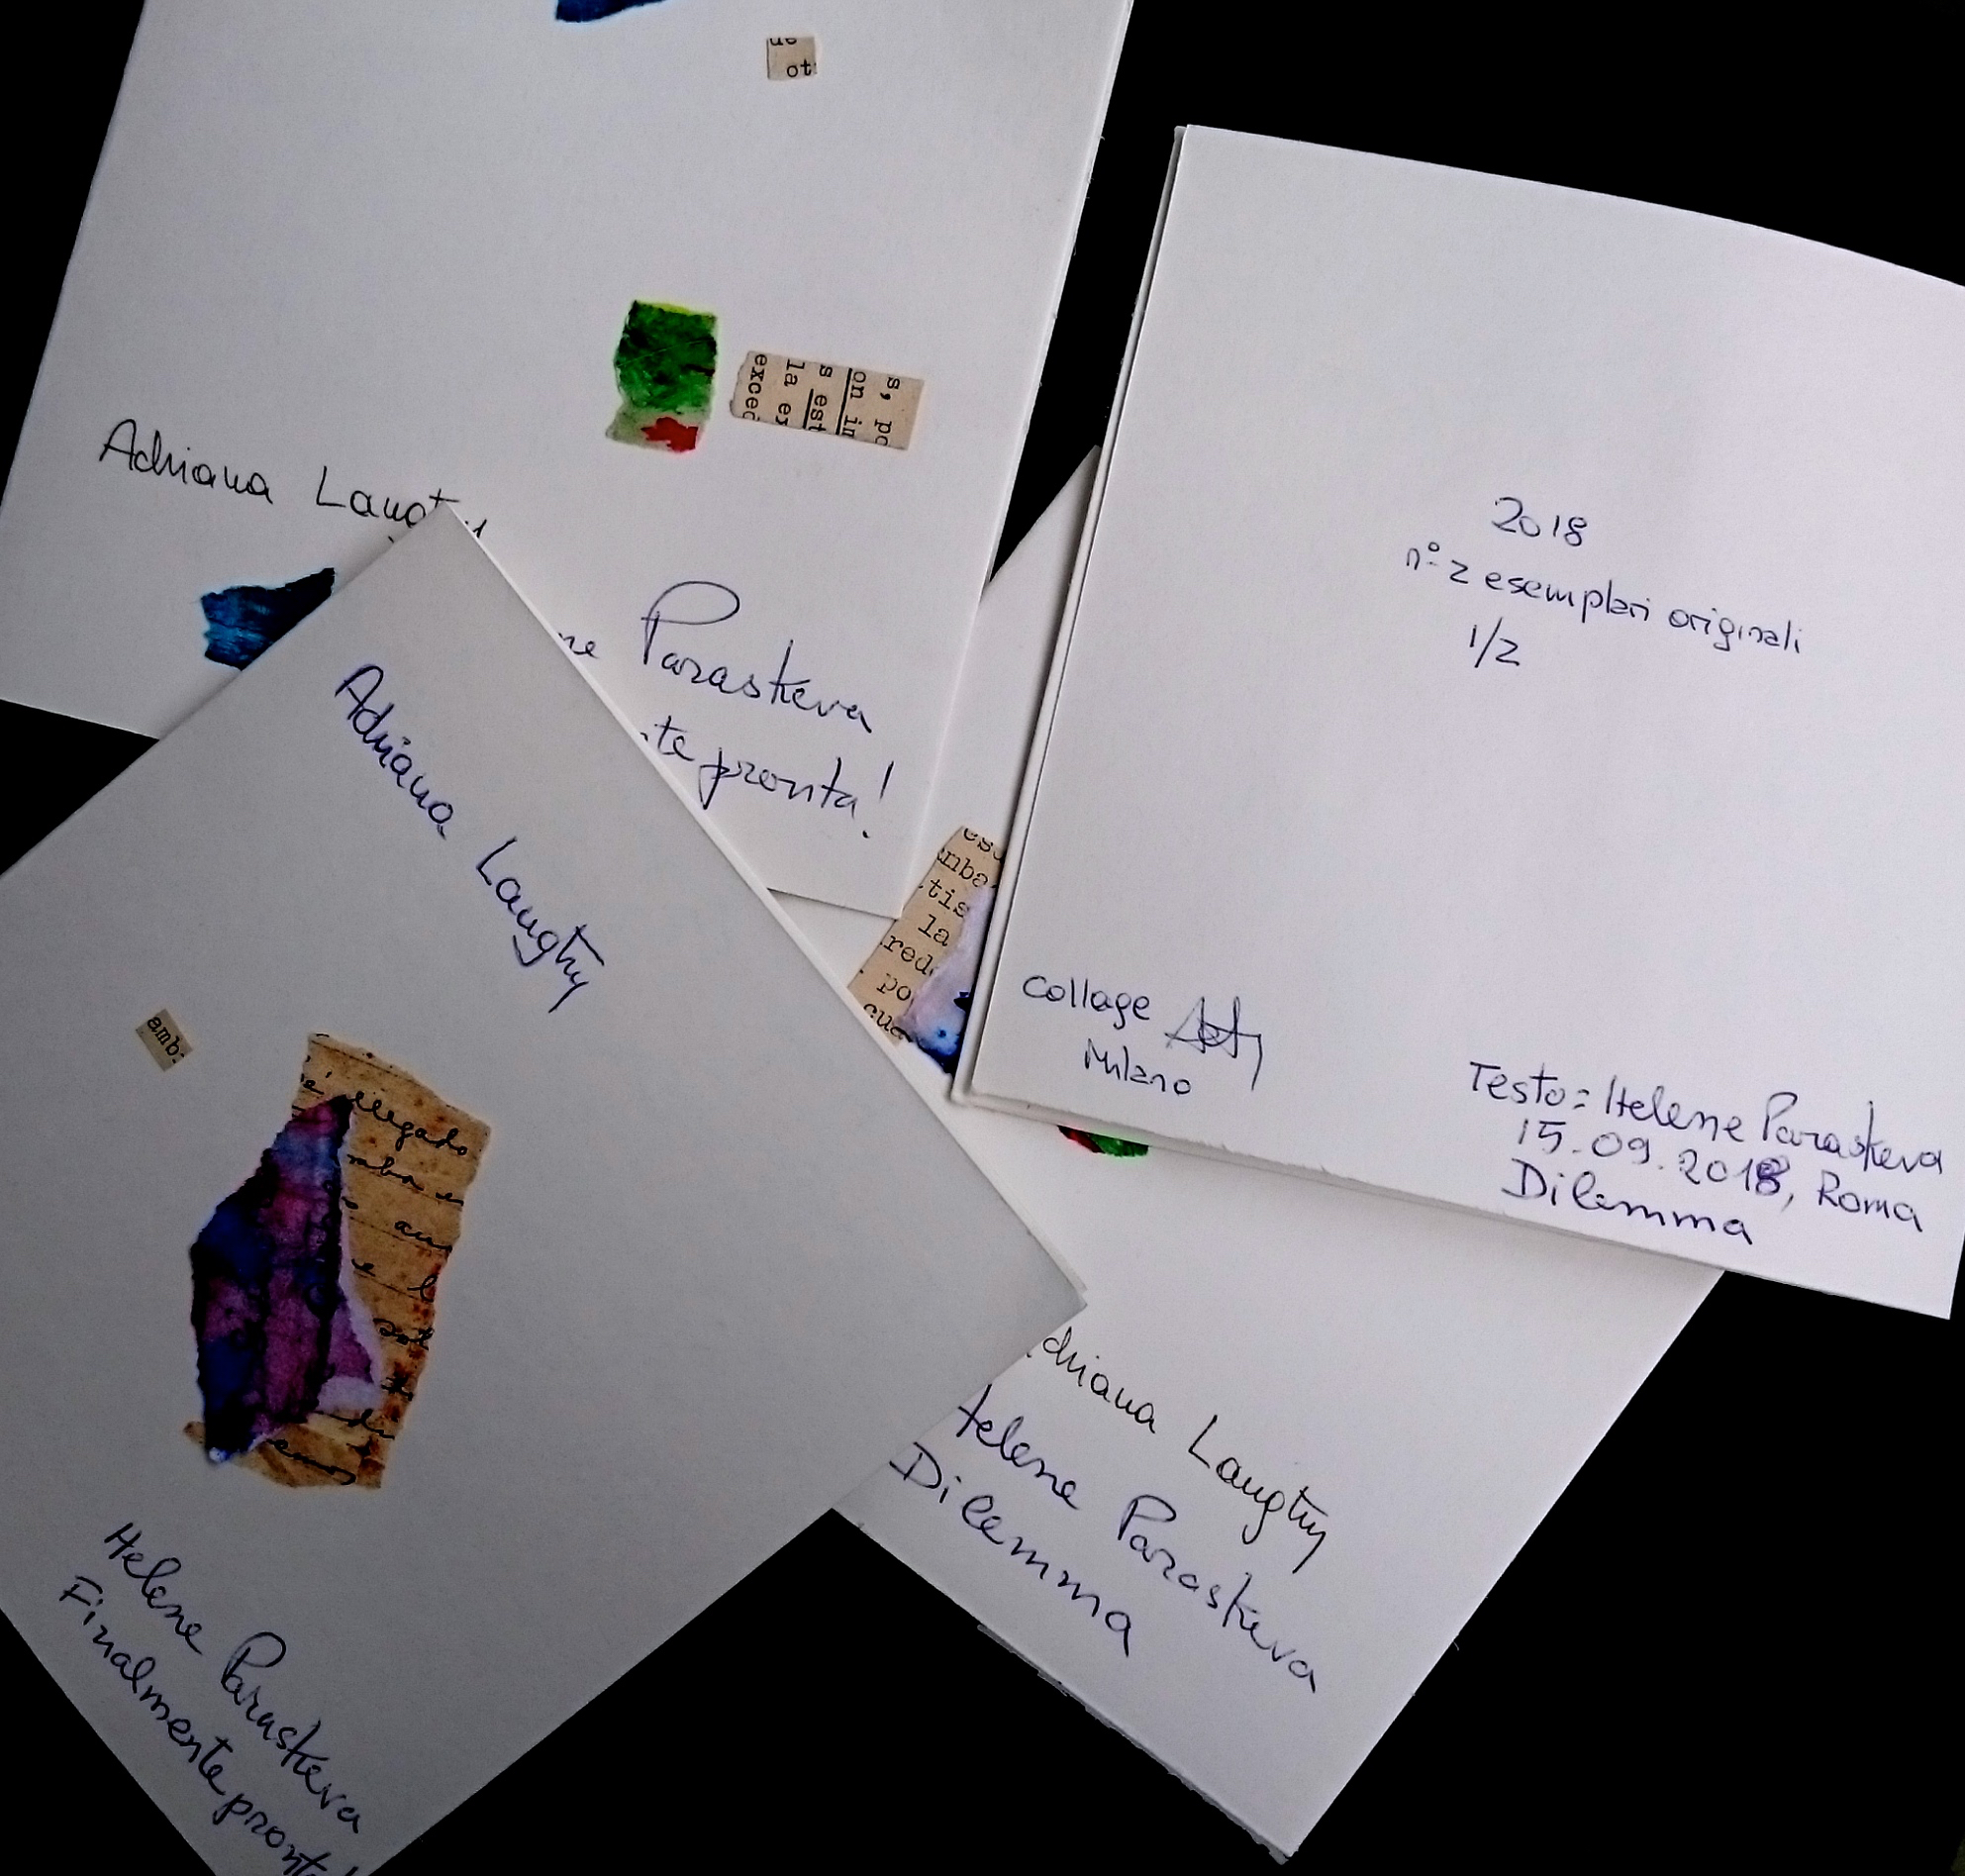 ot
s, po
on in
s est
la ex
exced
Adriana
ne Paraskeva
te pronta!
2018
n° 2 esemplari originali
1/2
Collage
Milano
Testo: Helene Paraskeva
15.09.2018, Roma
Dilemma
Adriana Langtry
amb
Helene Paraskeva
Finalmente pronta!
tis
la
red
po
cue
driana Langtry
Helene Paraskeva
Dilemma